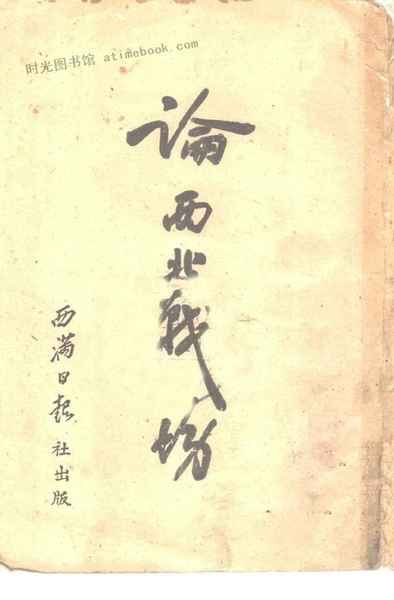 时光图书馆 atimebook.com
論西北戰場
西满日报社出版